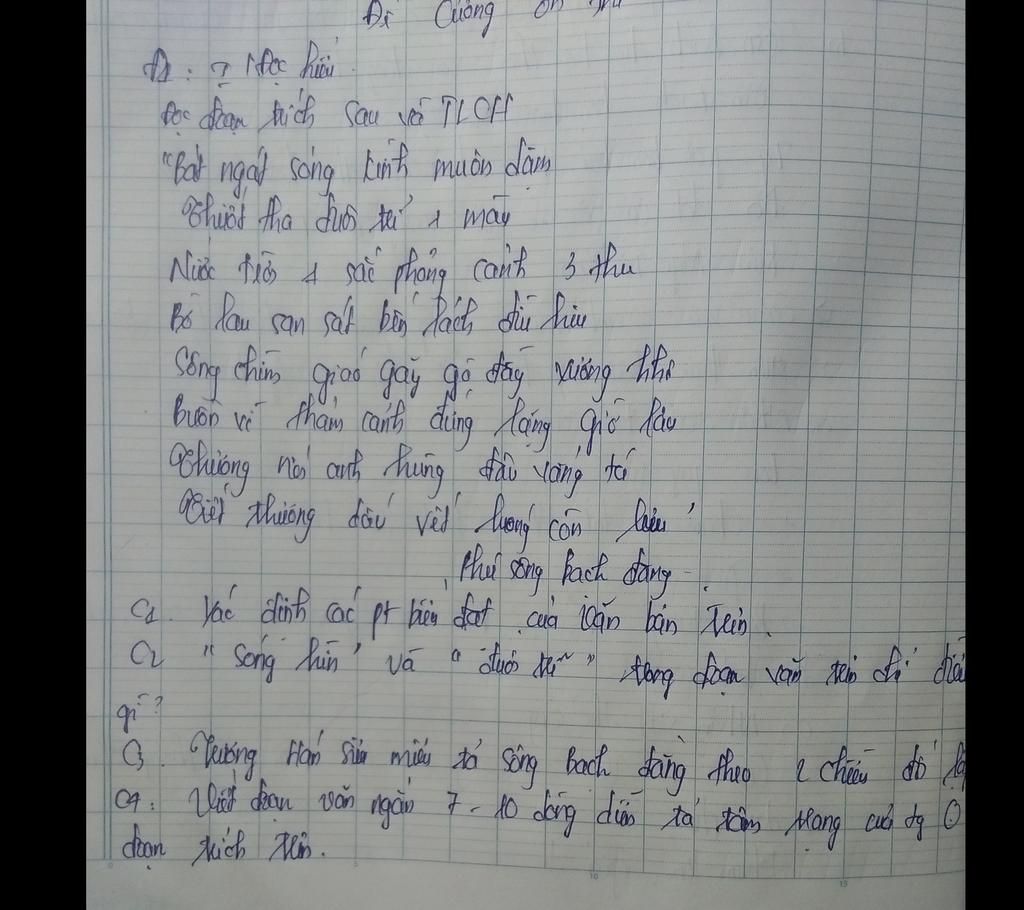 Đề Cương ôn
Đề: Đọc hiểu.
Đọc đoạn trích sau và TLCH
"Bát ngát sóng kình muôn dặm
Thướt tha đuôi trĩ 1 màu
Nước trời 1 sắc phong cảnh 3 thu
Bờ lau san sát bến lách đìu hiu
Sông chìm giáo gãy gò đầy xương khô
Buồn vì thảm cảnh đứng lặng giờ lâu
Thương nỗi anh hùng đâu vắng tá
Tiếc thương dấu vết luống còn lưu"
Phú sông bạch đằng
C1. Xác định các pt biểu đạt của văn bản trên.
C2 "Sóng kình" và "đuôi trĩ" trong đoạn văn trên chỉ điều
gì?
C3. Trương Hán Siêu miêu tả sông bạch đằng theo 2 chiều đó là
C4: Viết đoạn văn ngắn 7-10 dòng diễn tả tâm trạng của tg
đoạn trích trên.